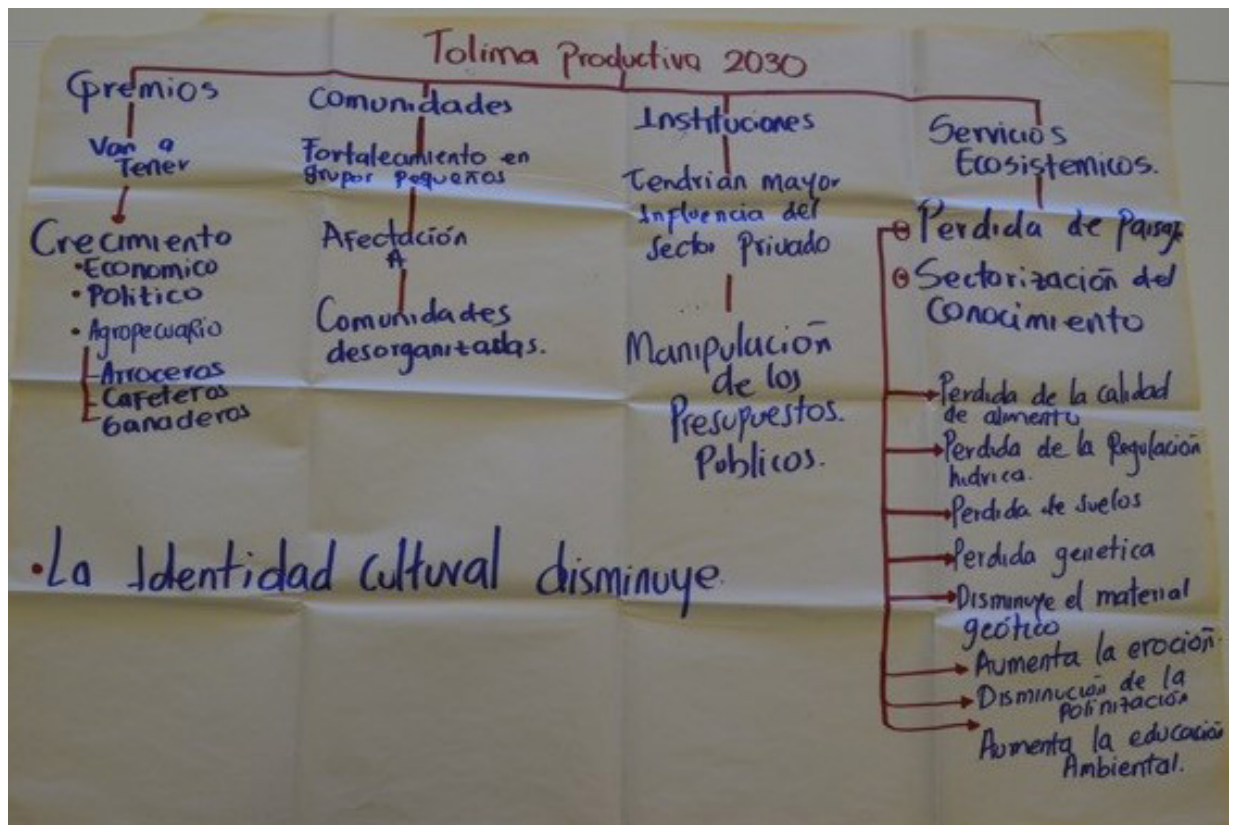 Tolima Productiva 2030
Gremios
Van a
Tener
Crecimiento
• Economico
• Politico
• Agropecuario
Arroceros
Cafeteros
Ganaderos
Comunidades
Fortalecimiento en
grupos pequeños
Afectación
A
Comunidades
desorganizadas.
Instituciones
Tendrian mayor
Influencia del
Sector Privado
Manipulación
de los
Presupuestos.
Publicos.
Servicios
Ecosistemicos.
Perdida de Paisaje
Sectorización del
Conocimiento
Perdida de la calidad
de alimento
Perdida de la Regulación
hidrica.
Perdida de suelos
Perdida genetica
Disminuye el material
geótico
Aumenta la eroción.
Disminución de la
Polinización
Aumenta la educación
Ambiental.
• La Identidad Cultural disminuye.